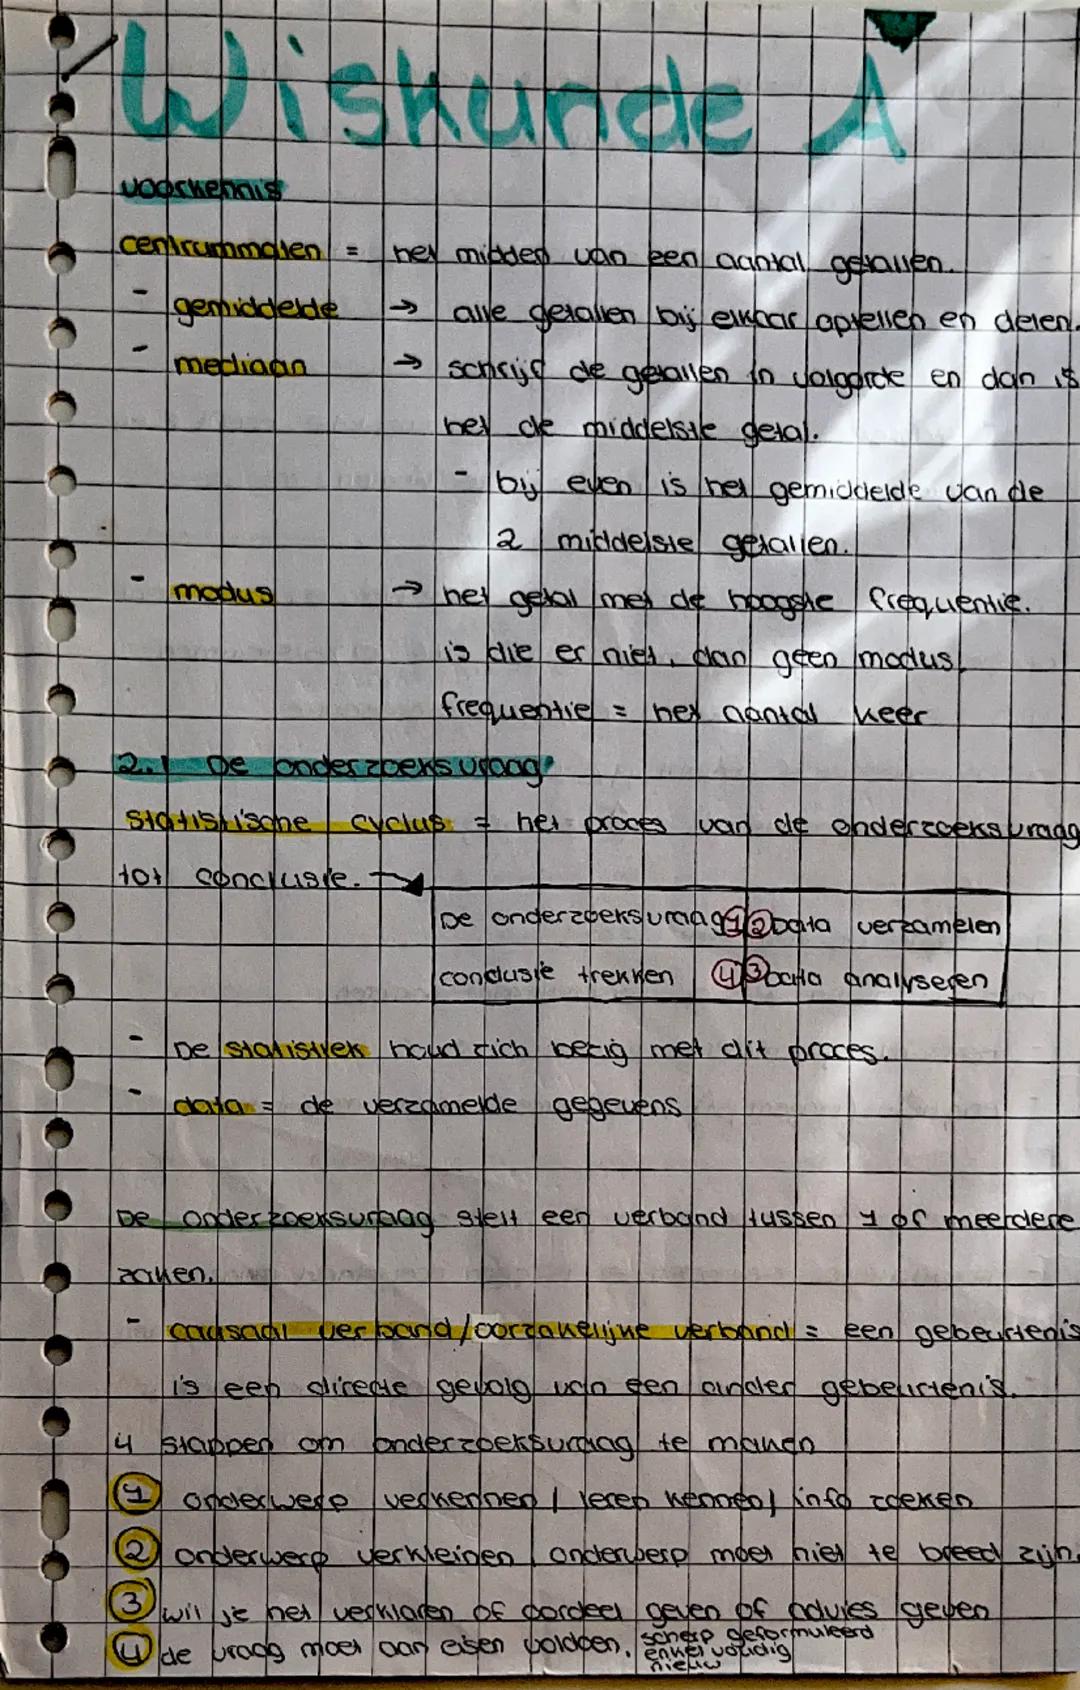 Wiskunde A
voorkennis
centrummaten = het midden van een aantal getallen.
- gemiddelde → alle getallen bij elkaar optellen en delen.
- mediaan → schrijf de getallen in volgorde en dan is
het de middelste getal.
- bij even is het gemiddelde van de
2 middelste getallen.
- modus → het getal met de hoogste frequentie.
is die er niet, dan geen modus
frequentie = het aantal keer
2.1 De onderzoeksvraag
statistische cyclus = het proces van de onderzoeksvraag
tot conclusie.
De onderzoeksvraag 1 2 Data verzamelen
conclusie trekken 4 3 Data analyseren
- De statistiek houd zich bezig met dit proces.
- data = de verzamelde gegevens
De onderzoeksvraag stelt een verband tussen 1 of meerdere
zaken.
- causaal verband/oorzakelijke verband = een gebeurtenis
is een directe gevolg van een ander gebeurtenis.
4 stappen om onderzoeksvraag te maken
1 onderwerp verkennen / leren kennen / info zoeken
2 onderwerp verkleinen, onderwerp moet niet te breed zijn.
3 wil je het verklaren of oordeel geven of advies geven
4 de vraag moet aan eisen voldoen. scherp geformuleerd
enkelvoudig
nieuw